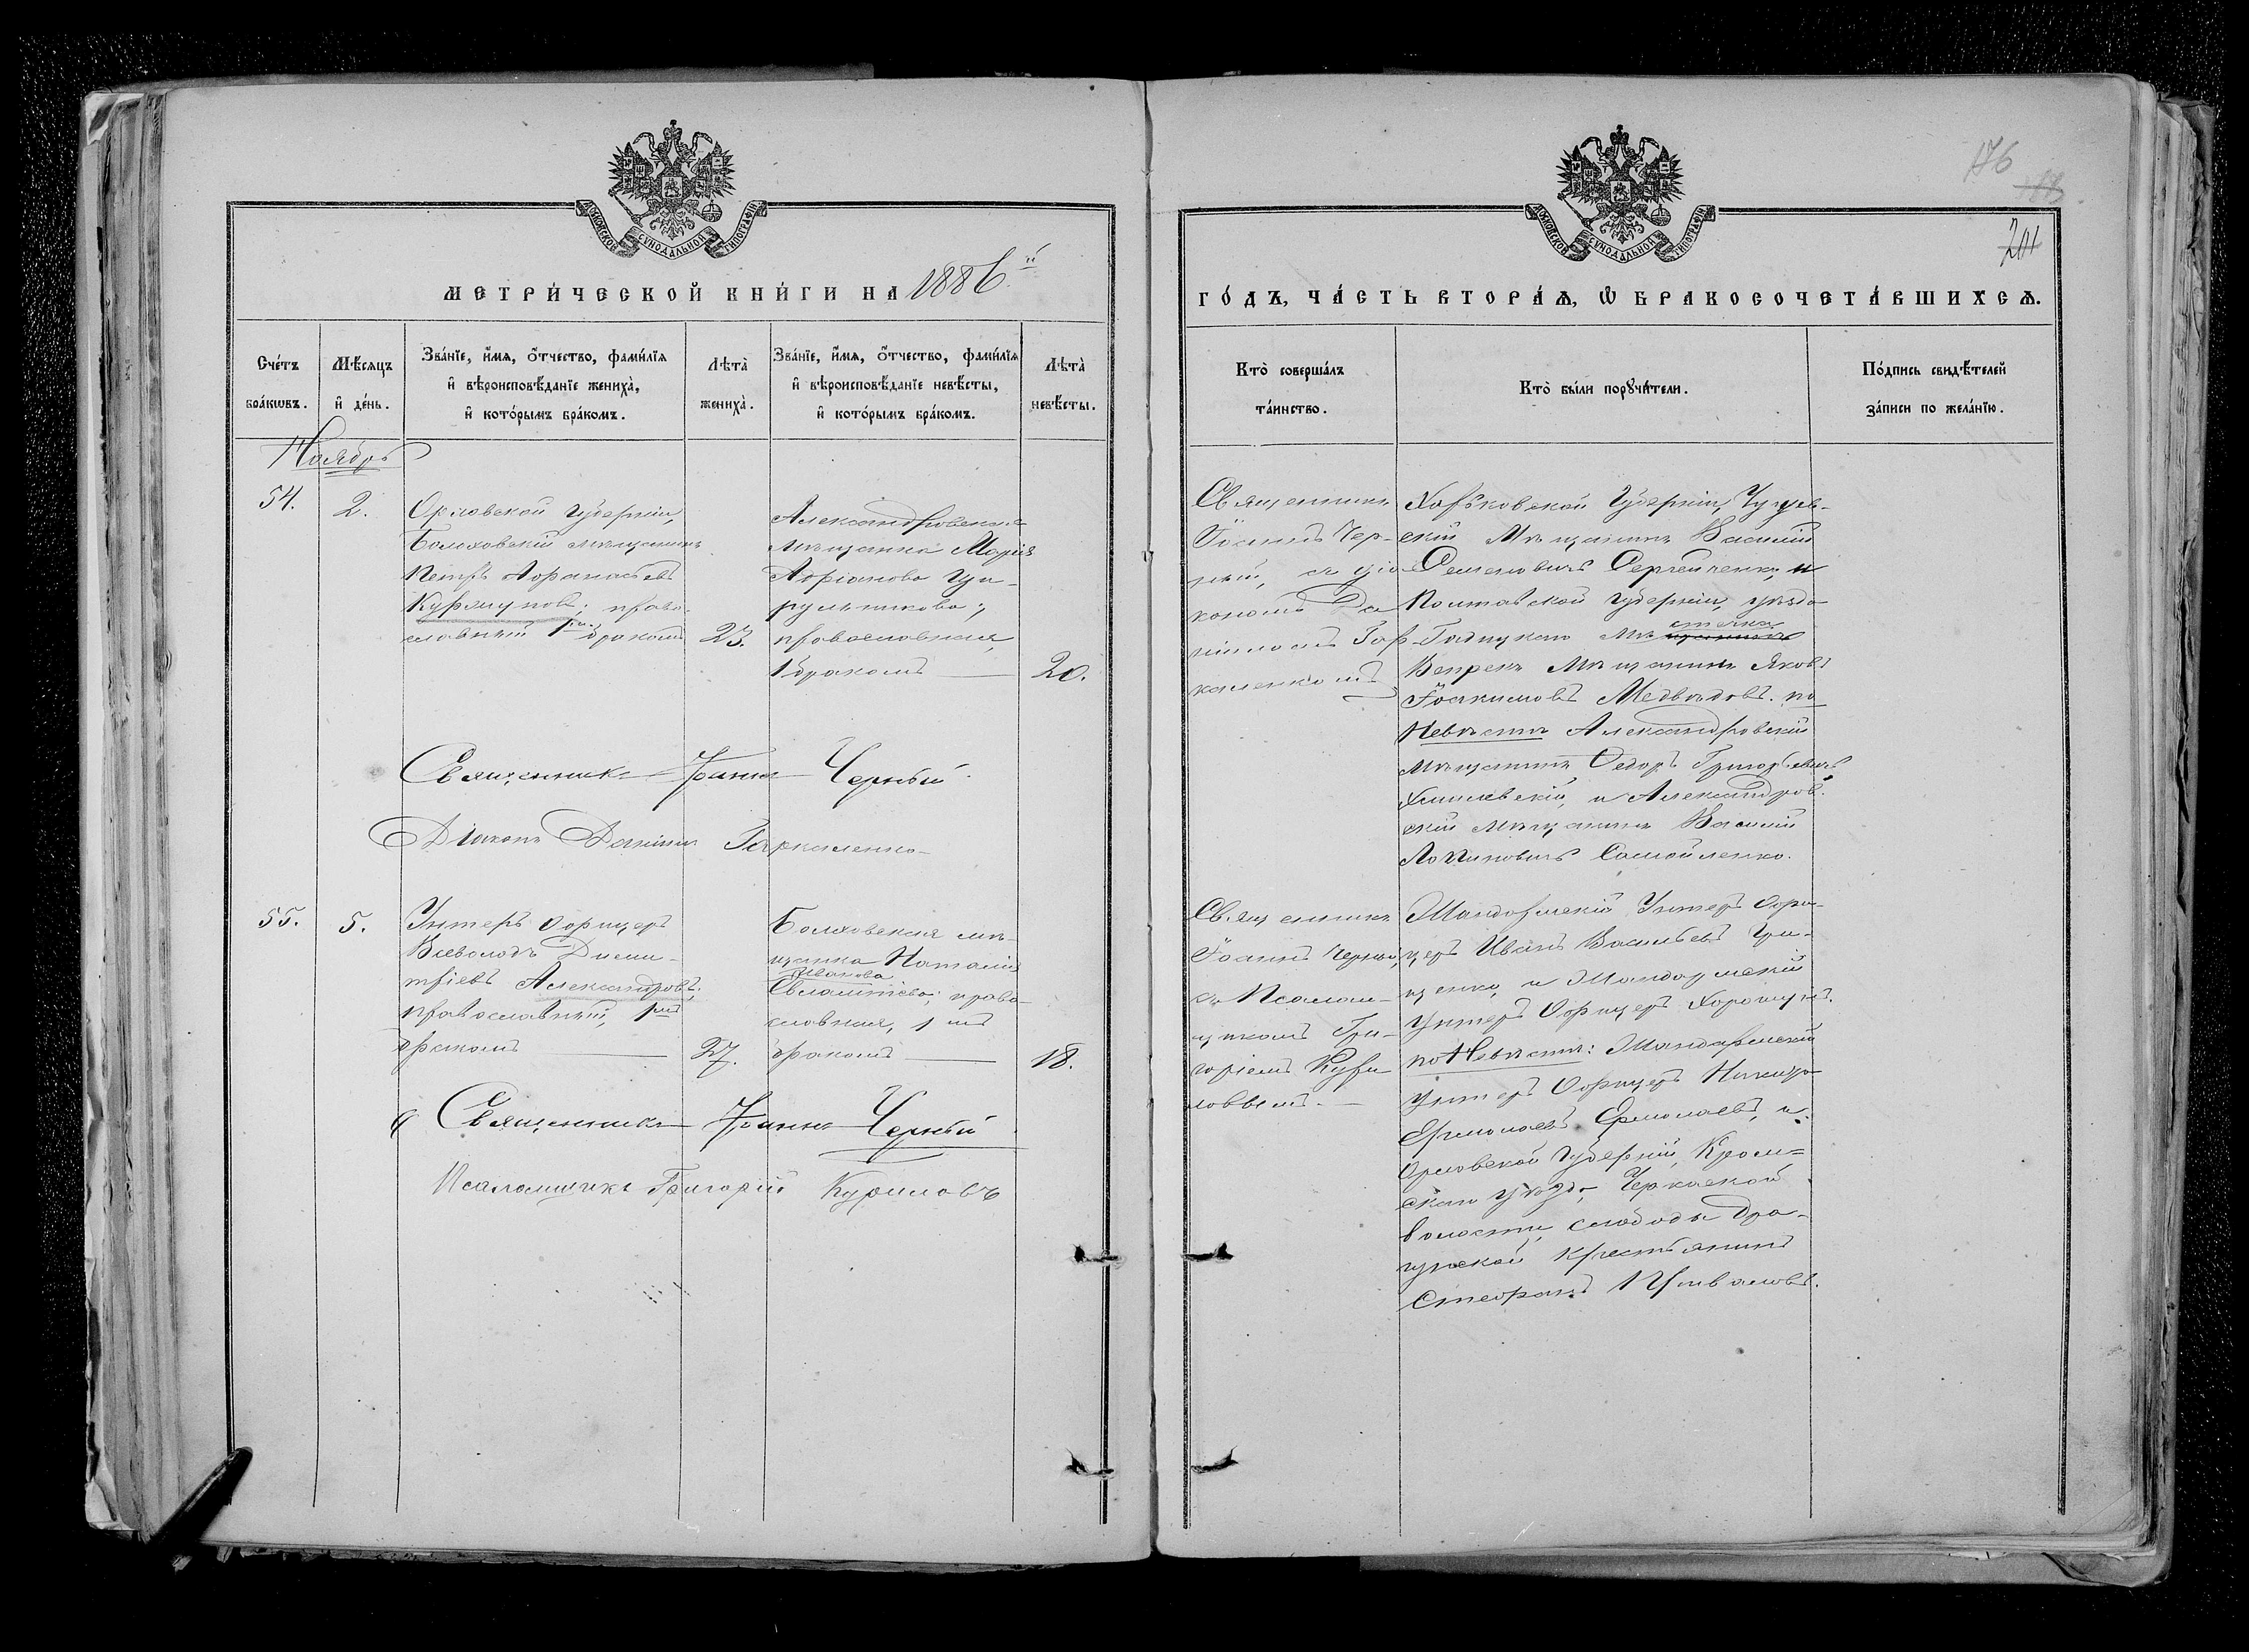 МОСКОВСКОЙ СУНОДАЛЬНОЙ ТИПОГРАФІИ
МЕТРИ́ЧЕСКОЙ КНИ́ГИ НА 1886 й
Сче́тъ бра́кωвъ.
Мѣ́сяцъ и҆ де́нь.
Зва́нїе, и҆́мѧ, ѻ҆́тчество, фамі́лїѧ
и҆ вѣроисповѣ́данїе жениха̀,
и҆ кото́рымъ бра́комъ.
Лѣта̀
жениха̀.
Зва́нїе, и҆́мѧ, ѻ҆́тчество, фамі́лїѧ
и҆ вѣроисповѣ́данїе невѣ́сты,
и҆ кото́рымъ бра́комъ.
Лѣта̀
невѣ́сты.
Ноябрь
54.
2.
Орловской Губерніи,
Болховскій мѣщанинъ
Петръ Афанасьевъ
православный 1мъ бракомъ
23.
Александровская
мѣщанка Марія
Адріанова Цы-
рульникова;
православная,
1 бракомъ
20.
Священникъ Іоаннъ Черный
Діаконъ Даніилъ Гаркаленко
55.
5.
Унтеръ Офицеръ
Всеволодъ Дими-
тріевъ Александровъ;
православный, 1мъ
бракомъ
27.
Болховская мѣ-
щанка Наталія
Иванова
право-
славная, 1мъ
бракомъ
18.
Священникъ Іоаннъ Черный
Псаломщикъ Григорій Куриловъ
176
201
МОСКОВСКОЙ СУНОДАЛЬНОЙ ТИПОГРАФІИ
ГО́ДЪ, ЧА́СТЬ ВТОРА́Ѧ, Ѡ҆ БРАКОСОЧЕТА́ВШИХСѦ.
Кто̀ соверша́лъ
та́инство.
Кто̀ бы́ли порꙋчи́тели.
По́дпись свидѣ́телей
за́писи по жела́нїю.
Священникъ
Іоаннъ Чер-
ный, съ діа-
кономъ Да-
ніиломъ Гар-
каленкомъ
Харьковской Губерніи, Чугуев-
скій Мѣщанинъ Василій
Семеновичъ Сергейченко, и
Полтавской Губерніи, уѣзда
Гадяцкаго Мѣстечка
Веприкъ Мѣщанинъ Яковъ
Іоакимовъ Медвѣдовъ. по
Невѣстѣ Александровскій
мѣщанинъ Ѳедоръ Григорьевичъ
Хмилевскій, и Александров-
скій мѣщанинъ Василій
Логиновичъ Самойленко.
Священникъ
Іоаннъ Черный,
съ Псалом-
щикомъ Гри-
горіемъ Кури-
ловвымъ.
Жандармскій Унтеръ Офи-
церъ Иванъ Васильевъ Гри-
ценко, и Жандармскій
Унтеръ Офицеръ
по Невѣстѣ: Жандармскій
Унтеръ Офицеръ
Ермолаевъ Ермолаевъ, и
Орловской Губерніи, Кром-
скаго Уѣзда, Черкаской
волости, слободы Дра-
гунской Крестьянинъ
Стефанъ